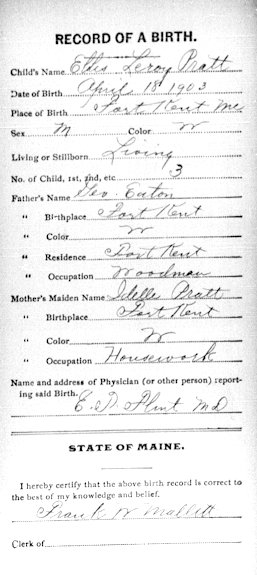 RECORD OF A BIRTH.
Child's Name Ellis Leroy Pratt
Date of Birth April 18 1903
Place of Birth Fort Kent Me
Sex M Color W
Living or Stillborn Living
No. of Child, 1st, 2nd, etc 3
Father's Name Geo. Eaton
" Birthplace Fort Kent
" Color W
" Residence Fort Kent
" Occupation Woodman
Mother's Maiden Name Idella Pratt
" Birthplace Fort Kent
" Color W
" Occupation Housework
Name and address of Physician (or other person) report-
ing said Birth.
E. D. Flint M D
STATE OF MAINE.
I hereby certify that the above birth record is correct to
the best of my knowledge and belief.
Frank W Mallett
Clerk of